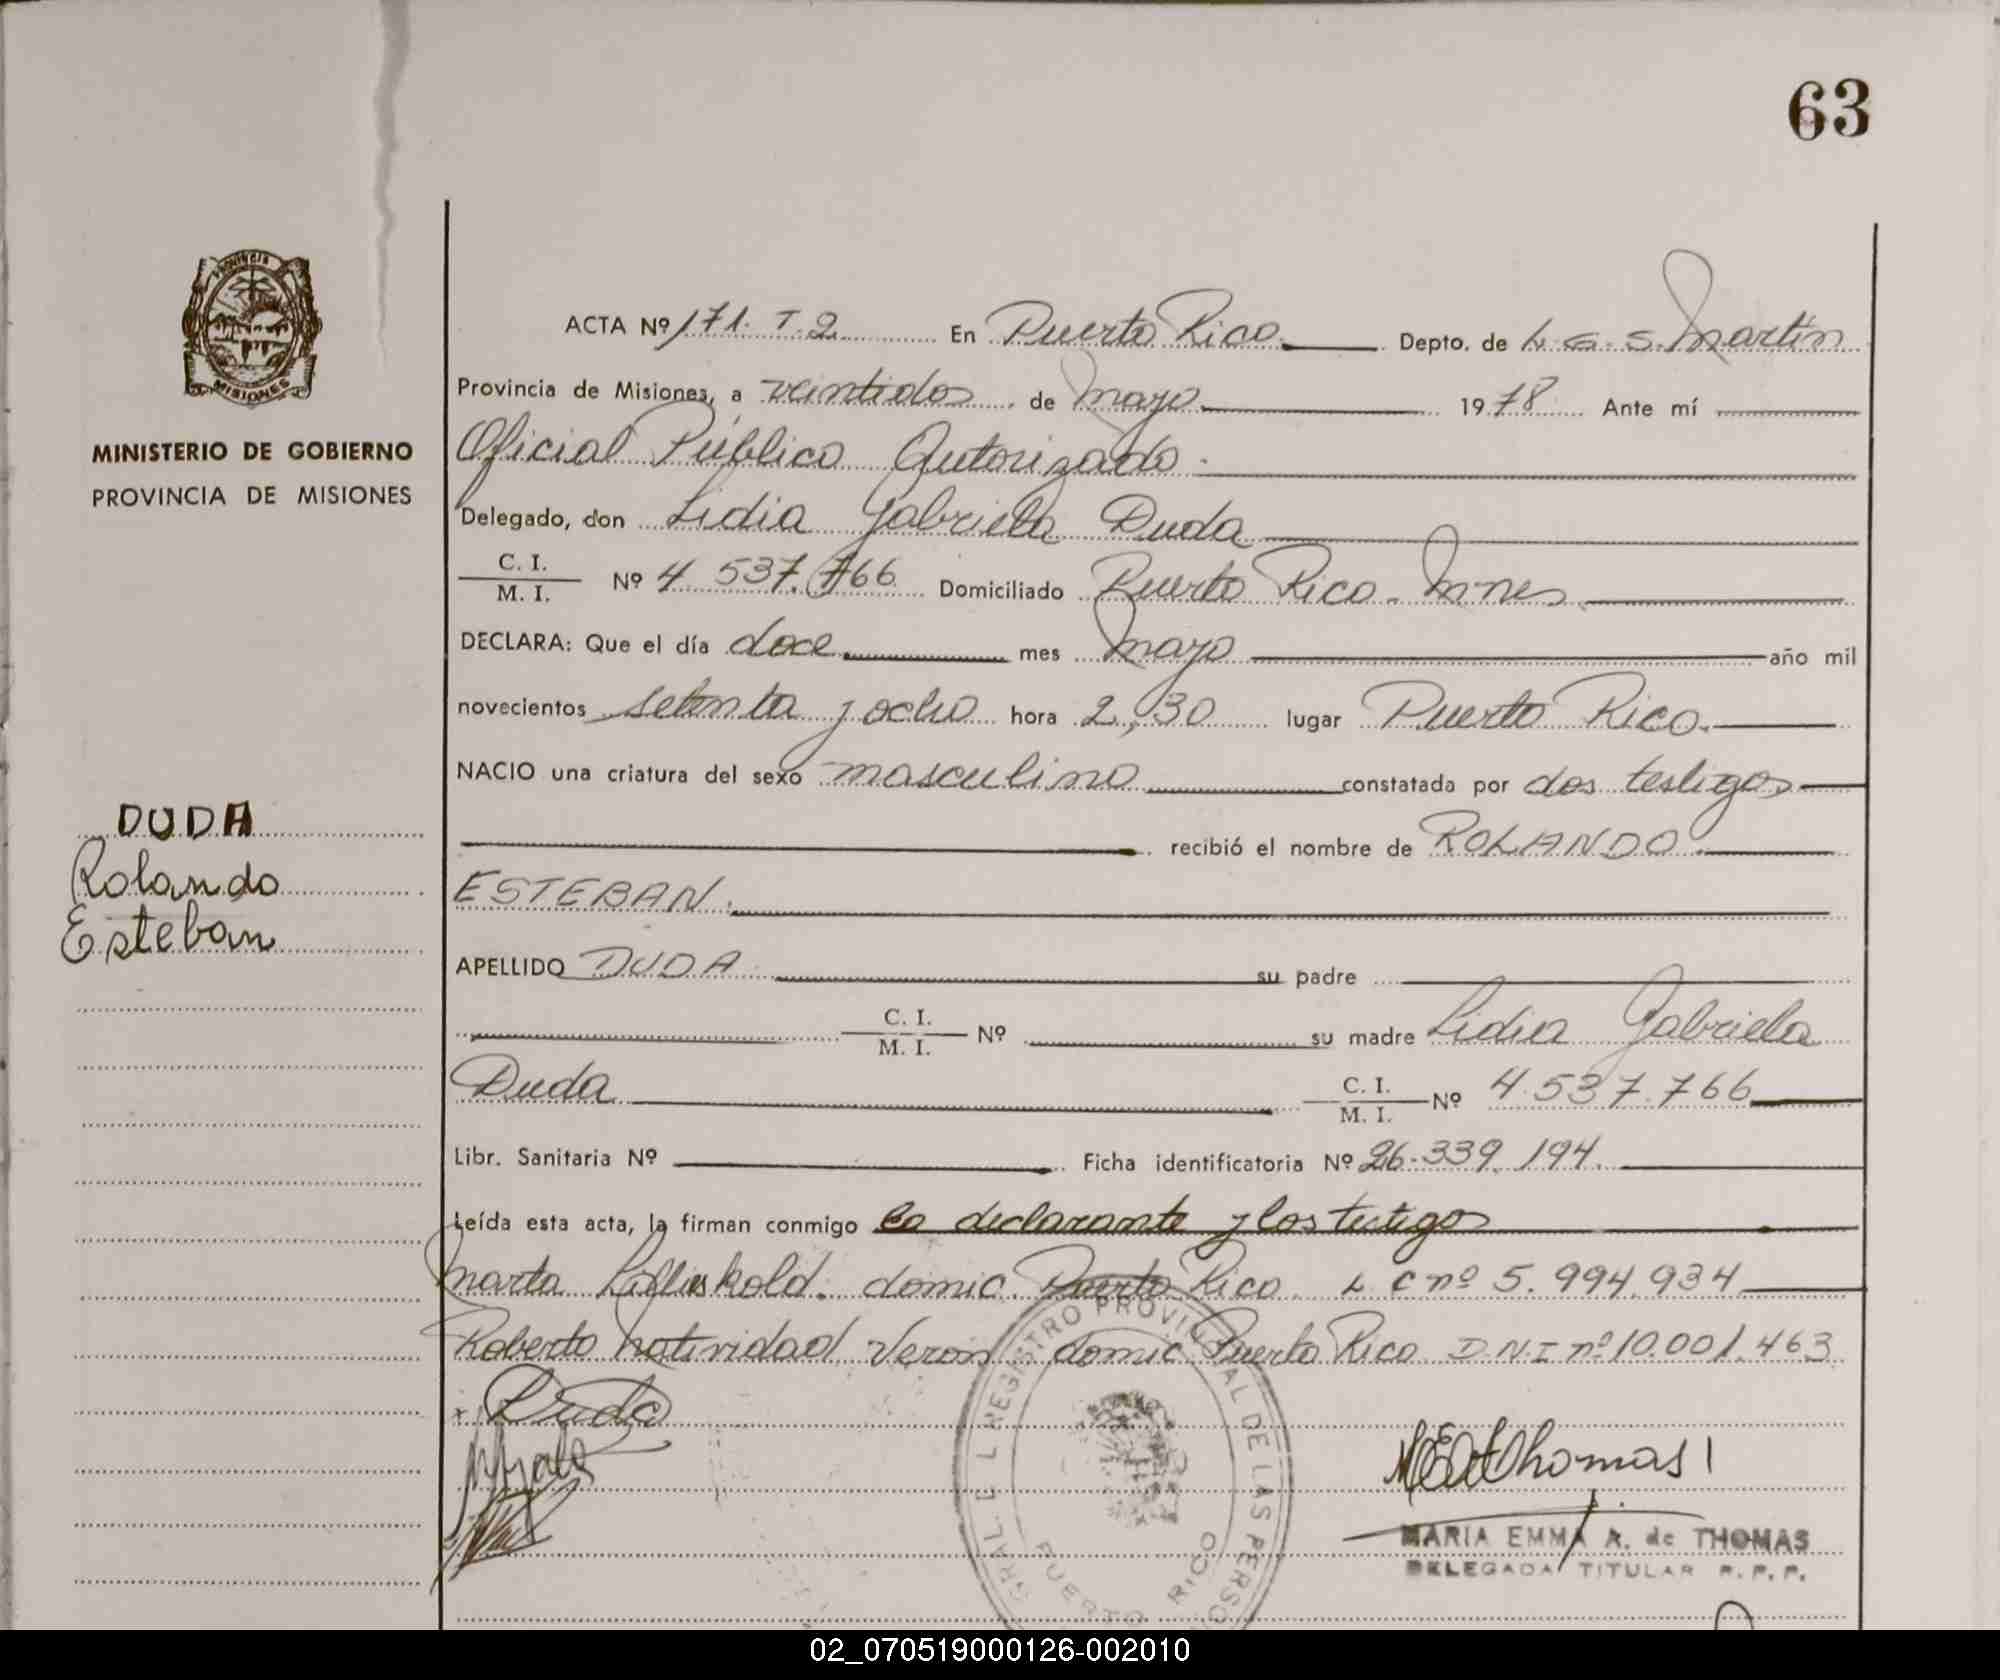 63
PROVINCIA
MISIONES
MINISTERIO DE GOBIERNO
PROVINCIA DE MISIONES
DUDA
Rolando
Esteban
ACTA Nº 171. T. 2 En Puerto Rico. Depto. de L. G. S. Martín
Provincia de Misiones, a veintidos de Mayo 1978 Ante mí
Oficial Público Autorizado.
Delegado, don Lidia Gabriela Duda
C. I. / M. I. Nº 4.537.766 Domiciliado Puerto Rico. Mnes.
DECLARA: Que el día doce mes Mayo año mil
novecientos setenta y ocho hora 2,30 lugar Puerto Rico.
NACIO una criatura del sexo masculino constatada por dos testigos
recibió el nombre de ROLANDO
ESTEBAN.
APELLIDO DUDA su padre
C. I. / M. I. Nº su madre Lidia Gabriela
Duda C. I. / M. I. Nº 4.537.766
Libr. Sanitaria Nº Ficha identificatoria Nº 26.339.194.
Leída esta acta, la firman conmigo la declarante y los testigos
Marta domic. Puerto Rico. L C nº 5.994.934
Roberto Natividad Veron domic. Puerto Rico D.N.I nº 10.001.463
Duda
GRAL. DEL REGISTRO PROVINCIAL DE LAS PERSO
PUERTO RICO
MEA Thomas
MARIA EMMA A. de THOMAS
DELEGADA TITULAR R. P. P.
02_070519000126-002010